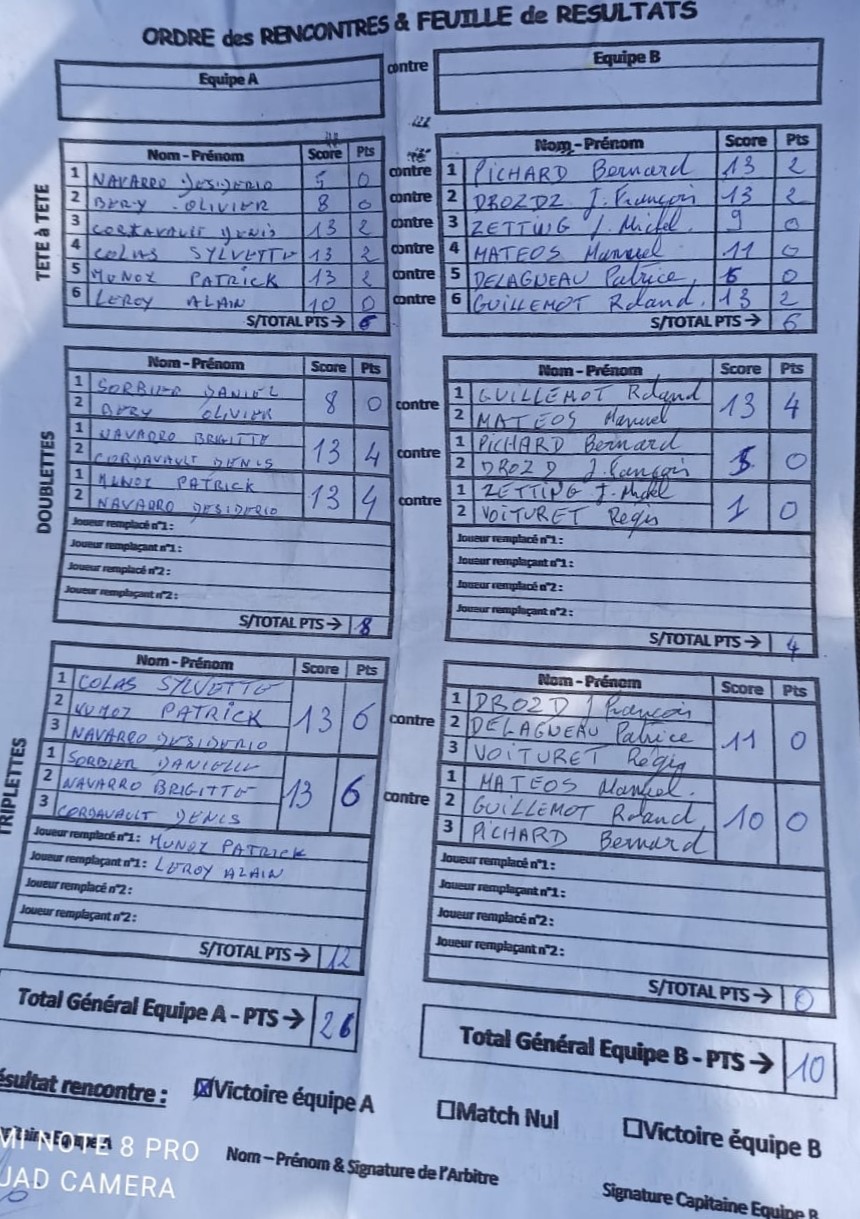 ORDRE des RENCONTRES & FEUILLE de RESULTATS
Equipe A contre Equipe B
TETE à TETE
Nom - Prénom Score Pts Nom - Prénom Score Pts
1 NAVARRO DESIDERIO 5 0 contre 1 PICHARD Bernard 13 2
2 BERY OLIVIER 8 0 contre 2 DROZDZ J. François 13 2
3 CORDAVAULT DENIS 13 2 contre 3 ZETTING J. Michel 9 0
4 COLAS SYLVETTE 13 2 contre 4 MATEOS Manuel 11 0
5 MUNOZ PATRICK 13 2 contre 5 DELAGNEAU Patrice 0
6 LEROY ALAIN 10 0 contre 6 GUILLEMOT Roland. 13 2
S/TOTAL PTS → 6 S/TOTAL PTS → 6
DOUBLETTES
Nom - Prénom Score Pts Nom - Prénom Score Pts
1 SORBIER DANIEL 8 0 contre 1 GUILLEMOT Roland 13 4
2 BERY OLIVIER 2 MATEOS Manuel
1 NAVARRO BRIGITTE 13 4 contre 1 PICHARD Bernard 0
2 CORDAVAULT DENIS 2 DROZD J. François
1 MUNOZ PATRICK 13 4 contre 1 ZETTING J. Michel 1 0
2 NAVARRO DESIDERIO 2 VOITURET Régis
Joueur remplacé n°1 : Joueur remplacé n°1 :
Joueur remplaçant n°1 : Joueur remplaçant n°1 :
Joueur remplacé n°2 : Joueur remplacé n°2 :
Joueur remplaçant n°2 : Joueur remplaçant n°2 :
S/TOTAL PTS → 8 S/TOTAL PTS → 4
TRIPLETTES
Nom - Prénom Score Pts Nom - Prénom Score Pts
1 COLAS SYLVETTE 13 6 contre 1 DROZD J François 11 0
2 MUNOZ PATRICK 2 DELAGNEAU Patrice
3 NAVARRO DESIDERIO 3 VOITURET Régis
1 SORBIER DANIELLE 13 6 contre 1 MATEOS Manuel. 10 0
2 NAVARRO BRIGITTE 2 GUILLEMOT Roland
3 CORDAVAULT DENIS 3 PICHARD Bernard
Joueur remplacé n°1: MUNOZ PATRICK Joueur remplacé n°1 :
Joueur remplaçant n°1: LEROY ALAIN Joueur remplaçant n°1 :
Joueur remplacé n°2: Joueur remplacé n°2 :
Joueur remplaçant n°2: Joueur remplaçant n°2 :
S/TOTAL PTS → 12 S/TOTAL PTS → 0
Total Général Equipe A - PTS → 26 Total Général Equipe B - PTS → 10
ésultat rencontre : ☒Victoire équipe A ☐Match Nul ☐Victoire équipe B
Nom – Prénom & Signature de l'Arbitre Signature Capitaine Equipe B
MI NOTE 8 PRO
UAD CAMERA